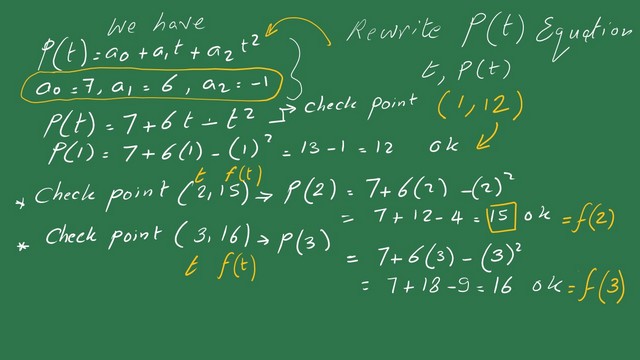 we have
P(t) = a0 + a1t + a2t²
a0 = 7, a1 = 6, a2 = -1
P(t) = 7 + 6t - t²
P(1) = 7 + 6(1) - (1)² = 13 - 1 = 12 ok
Rewrite P(t) Equation
t, P(t)
check point (1,12)
t f(t)
* Check point (2,15) → P(2) = 7+6(2) - (2)²
= 7 + 12 - 4 = 15 ok = f(2)
* Check point (3,16) → P(3)
t f(t)
= 7+6(3) - (3)²
= 7+18-9 = 16 ok = f(3)